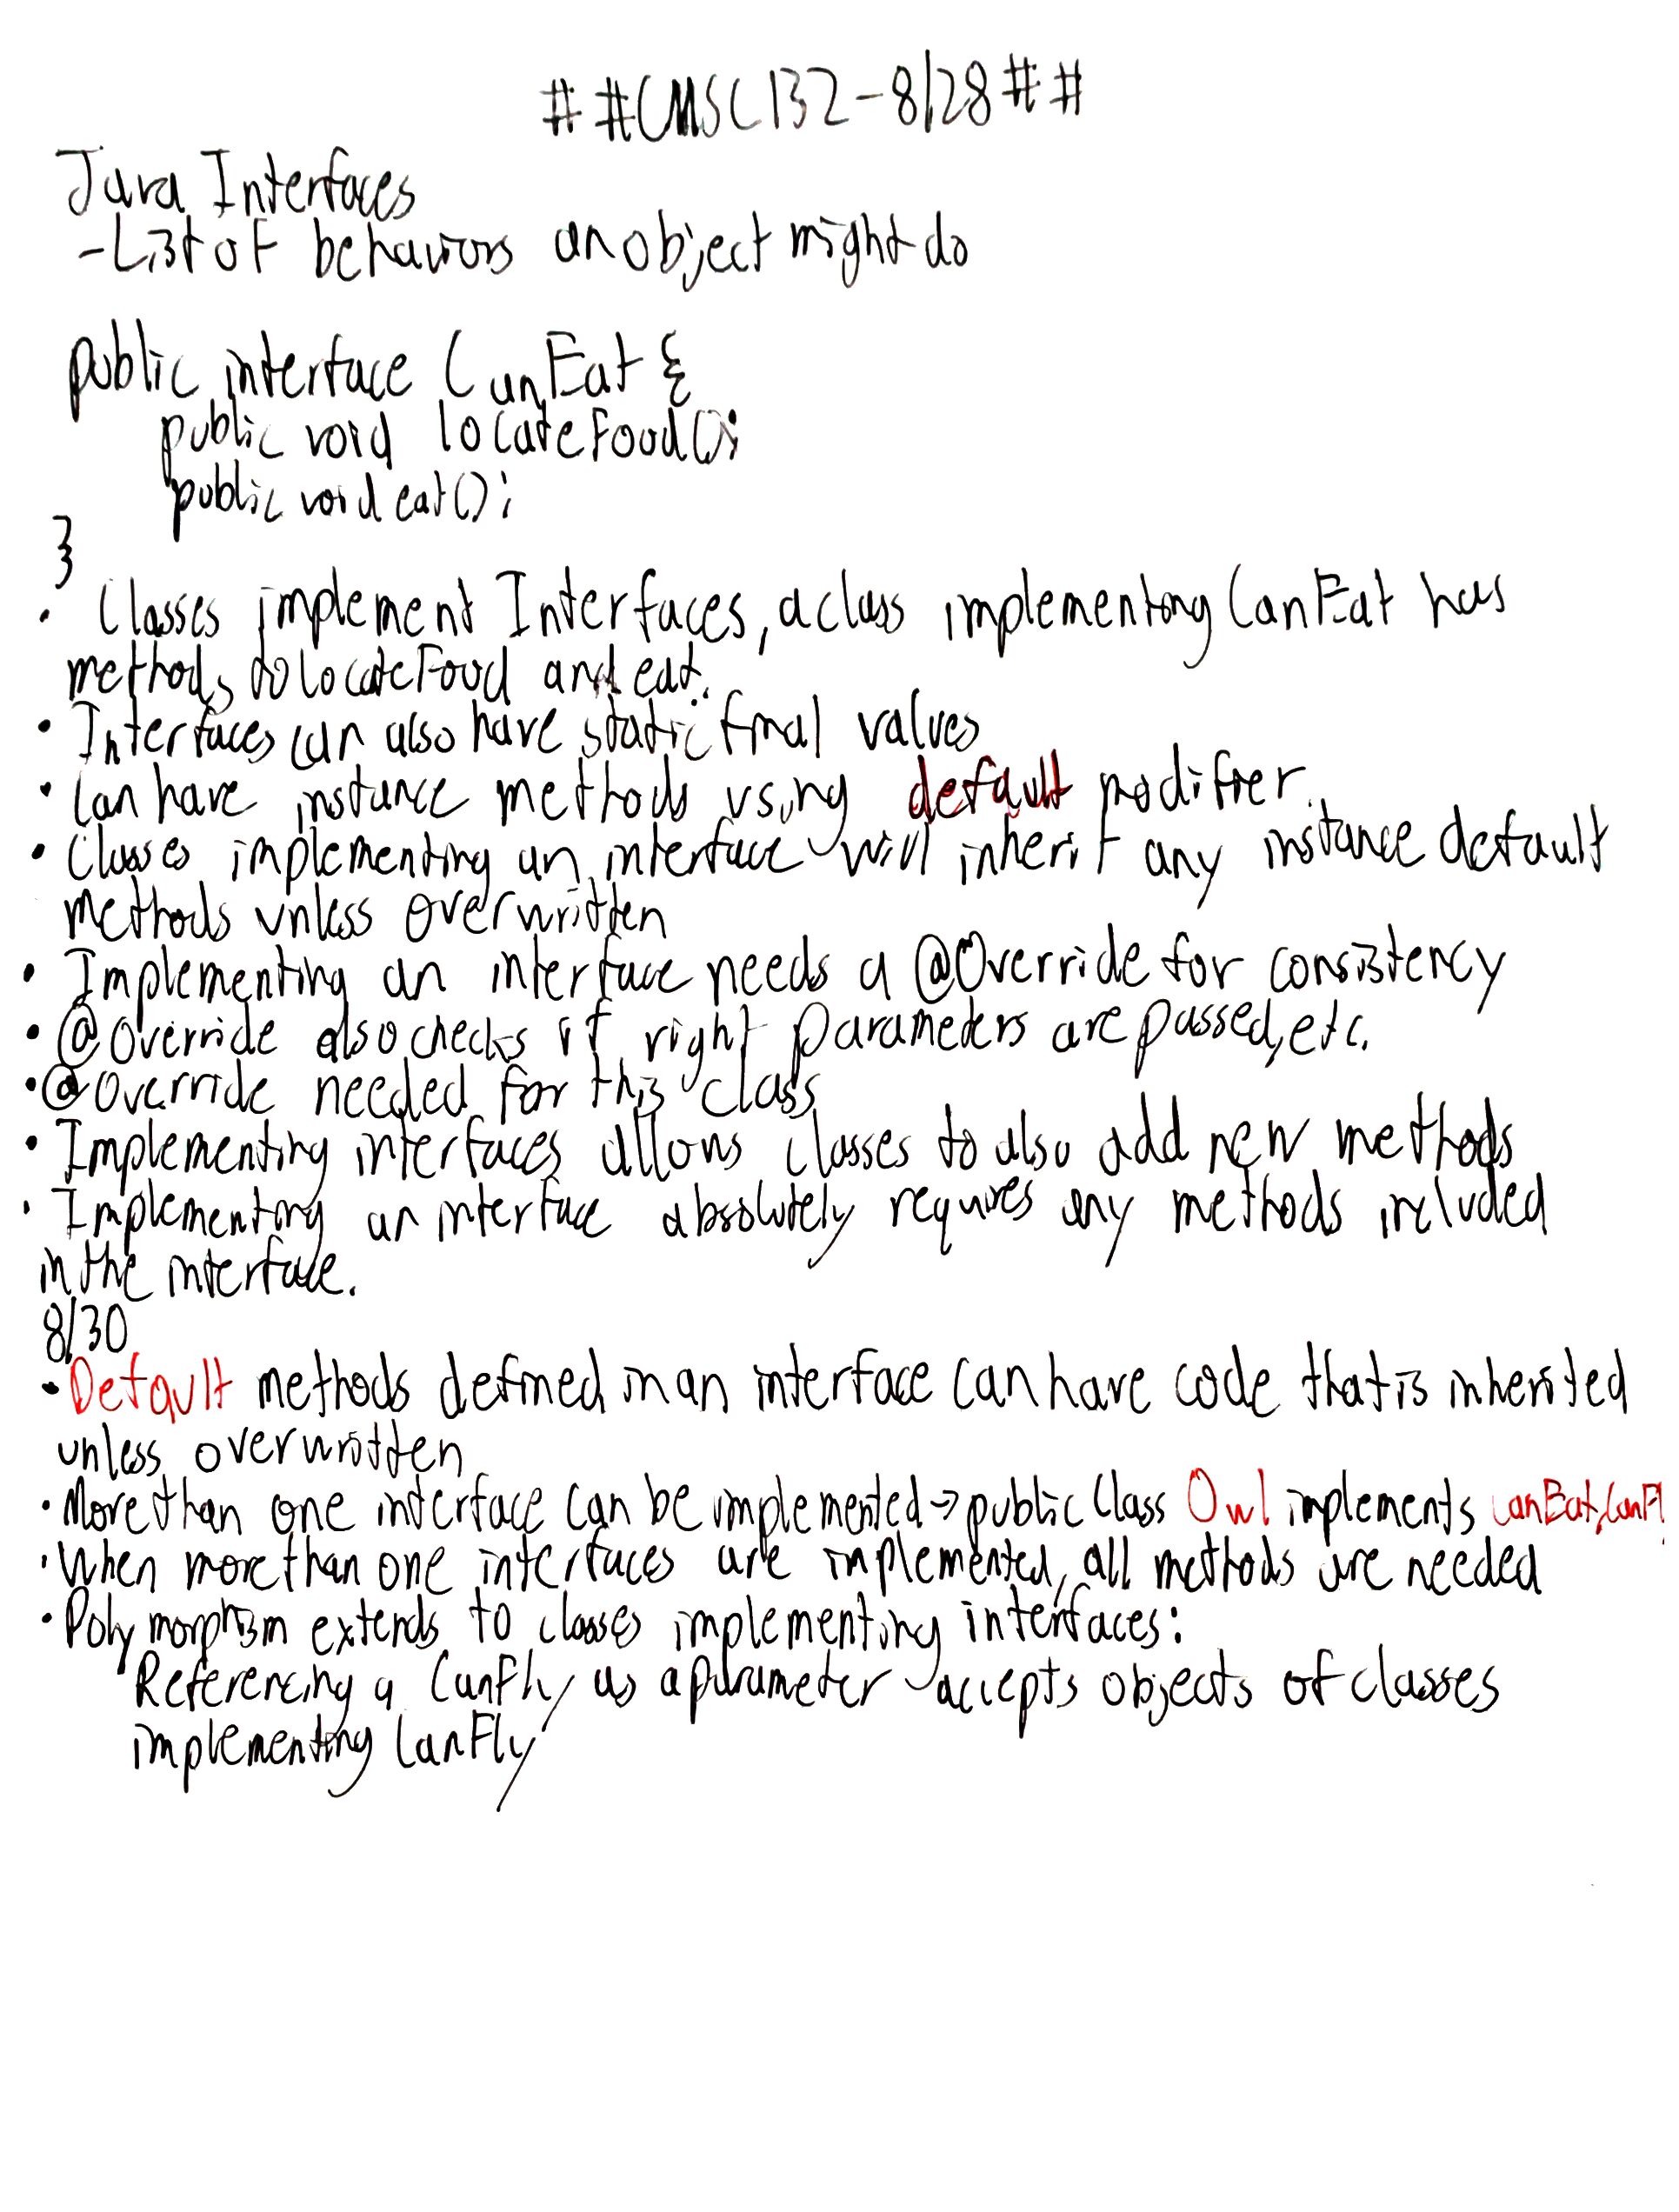 ##CMSC132-8/28##
Java Interfaces
-List of behaviors an object might do
public interface CanEat {
public void locateFood();
public void eat();
}
• Classes implement Interfaces, a class implementing CanEat has
methods to locateFood and eat.
• Interfaces can also have static final values
• Can have instance methods using default modifier.
• Classes implementing an interface will inherit any instance default
methods unless overwritten
• Implementing an interface needs a @Override for consistency
• @Override also checks if right parameters are passed, etc.
• @Override needed for this class
• Implementing interfaces allows classes to also add new methods
• Implementing an interface absolutely requires any methods included
in the interface.
8/30
• Default methods defined in an interface can have code that is inherited
unless overwritten
• More than one interface can be implemented → public class Owl implements CanEat, CanFl
• When more than one interfaces are implemented, all methods are needed
• Polymorphism extends to classes implementing interfaces:
Referencing a CanFly as a parameter accepts objects of classes
implementing CanFly